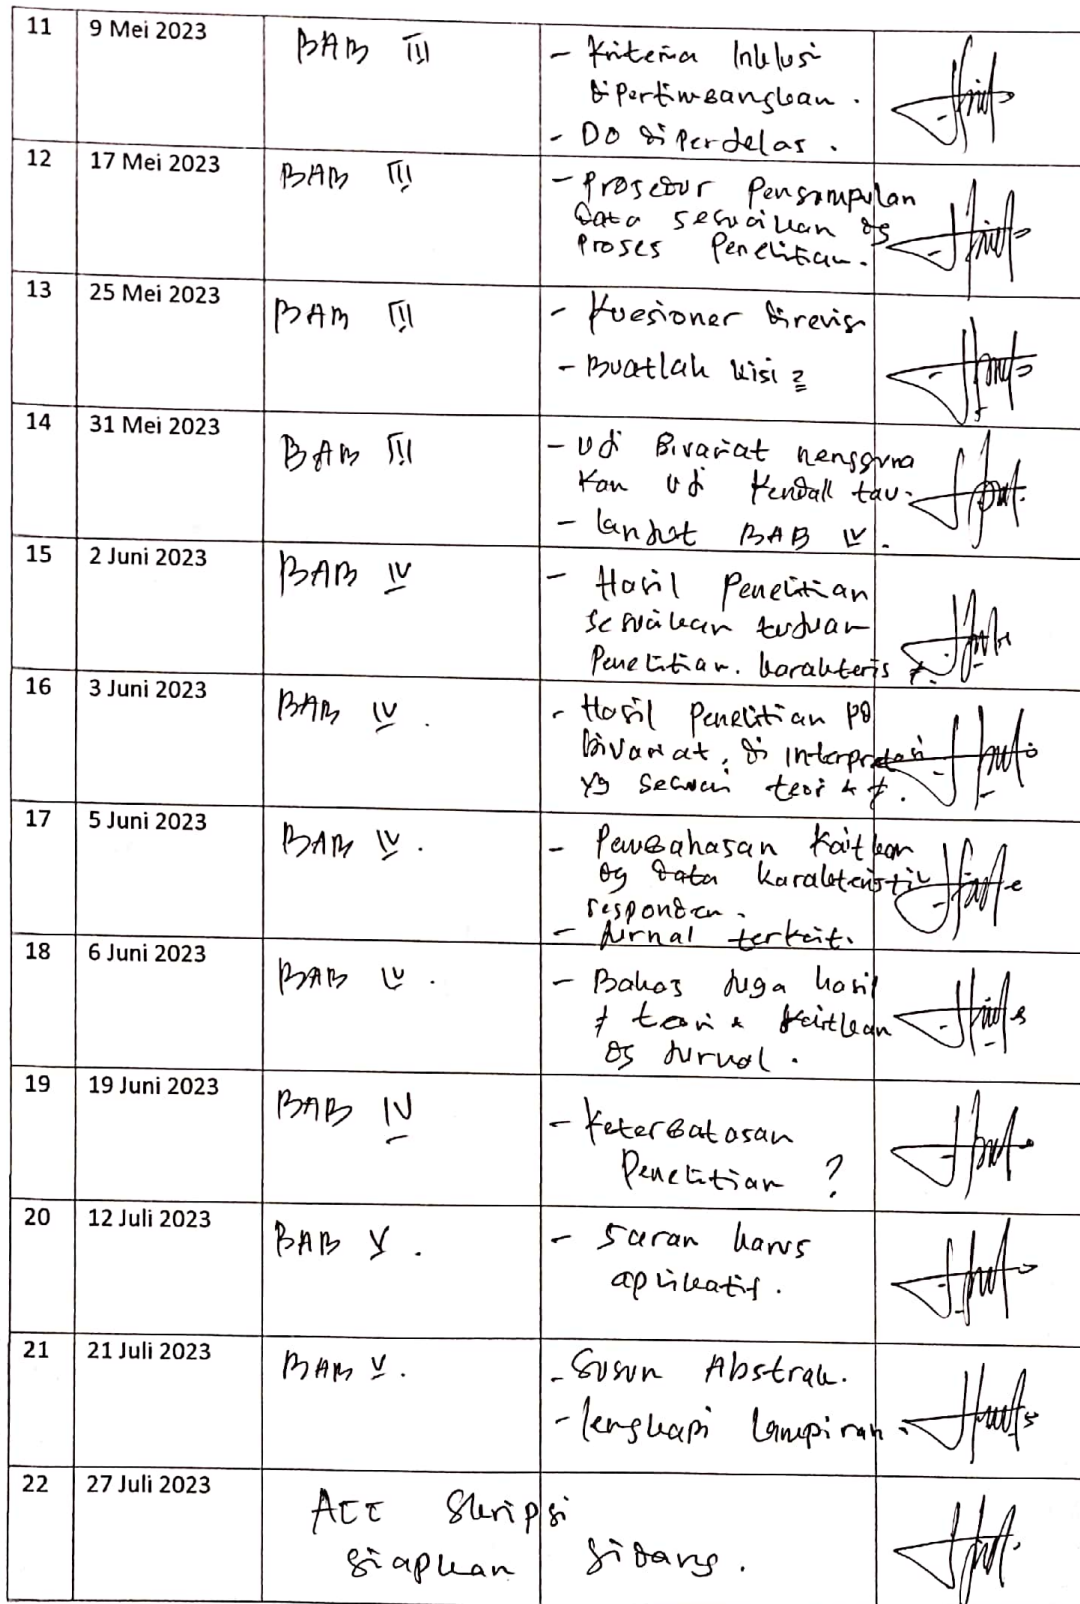 11 9 Mei 2023 BAB III - Kriteria Inklusi
dipertimbangkan.
- DO diperjelas.
12 17 Mei 2023 BAB III - Prosedur Pengumpulan
data sesuaikan dg
proses penelitian.
13 25 Mei 2023 BAB III - Kuesioner direvisi
- Buatlah kisi2
14 31 Mei 2023 BAB III - Uji Bivariat mengguna
kan uji Kendall tau.
- lanjut BAB IV.
15 2 Juni 2023 BAB IV - Hasil Penelitian
sesuaikan tujuan
Penelitian. karakteris
16 3 Juni 2023 BAB IV. - Hasil Penelitian pd
bivariat, di interpretasi
yg sesuai teori &
17 5 Juni 2023 BAB IV. - Pembahasan kaitkan
dg data karakteristik
responden.
- Jurnal terkait.
18 6 Juni 2023 BAB IV. - Bahas juga hasil
teori & kaitkan
dg jurnal.
19 19 Juni 2023 BAB IV - Keterbatasan
Penelitian ?
20 12 Juli 2023 BAB V. - Saran harus
aplikatif.
21 21 Juli 2023 BAB V. - Susun Abstrak.
- lengkapi lampiran.
22 27 Juli 2023 ACC Skripsi
siapkan sidang.